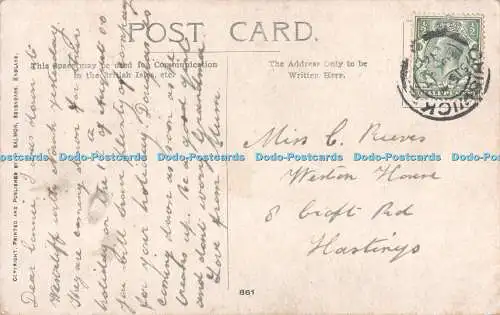 POST CARD.
This Space may be used for Communication
in the British Isles, etc.
The Address Only to be
Written Here.
COPYRIGHT. PRINTED AND PUBLISHED BY J. SALMON, SEVENOAKS, ENGLAND.
Dear Connie, I was down to
with yesterday
They are coming down for their
holiday on the 17th of August so
you will have plenty of company
for your holiday. Douglas is
coming down as soon as
breaks up. Be a good girl
and don't worry Grandma
Love from Mum.
Miss C. Reeves
Weston House
8 Croft Rd
Hastings
861
Postcards World
Postcards World
Postcards World
Postcards World
Postcards World
Postcards World